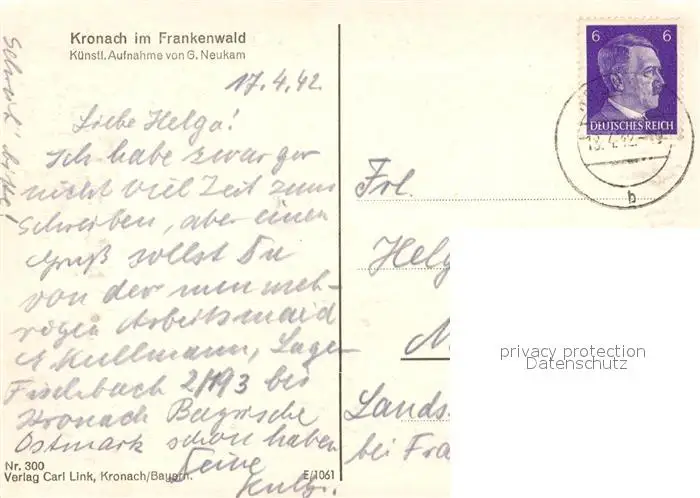 Kronach im Frankenwald
Künstl. Aufnahme von G. Neukam
17.4.42
Liebe Helga!
Ich habe zwar gar
nicht viel Zeit zum
Schreiben, aber einen
Gruß sollst Du
von der nun meh-
rigen Arbeitsmaid
Kullmann, Lager
Fischbach 2/193 bei
Kronach Bayrische
Ostmark schon haben
Deine
Schreib bitte!
Nr. 300
Verlag Carl Link, Kronach/Bayern.
E/1061
6 6
DEUTSCHES REICH
b
Frl.
Helg
Lands
bei Fra
privacy protection
Datenschutz